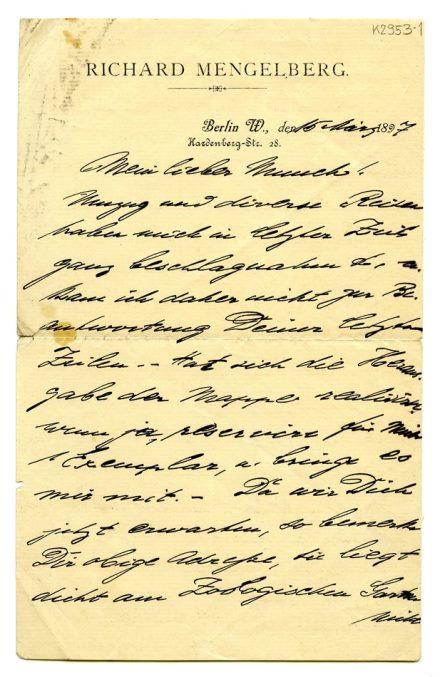 K2953-1
RICHARD MENGELBERG.
Berlin W., den 16 März 1897
Hardenberg-Str. 28.
Mein lieber Munch!
Umzug und diverse Reisen
haben mich in letzter Zeit
ganz beschlagnahmt u.
kam ich daher nicht zur Be
antwortung Deiner letzten
Zeilen. - Hat sich die Heraus
gabe der Mappe realisirt,
wenn ja, reservire für mich
1 Exemplar, u. bringe es
mir mit. - Da wir Dich
jetzt erwarten, so bemerke
Dir obige Adresse, sie liegt
dicht am Zoologischen Garten